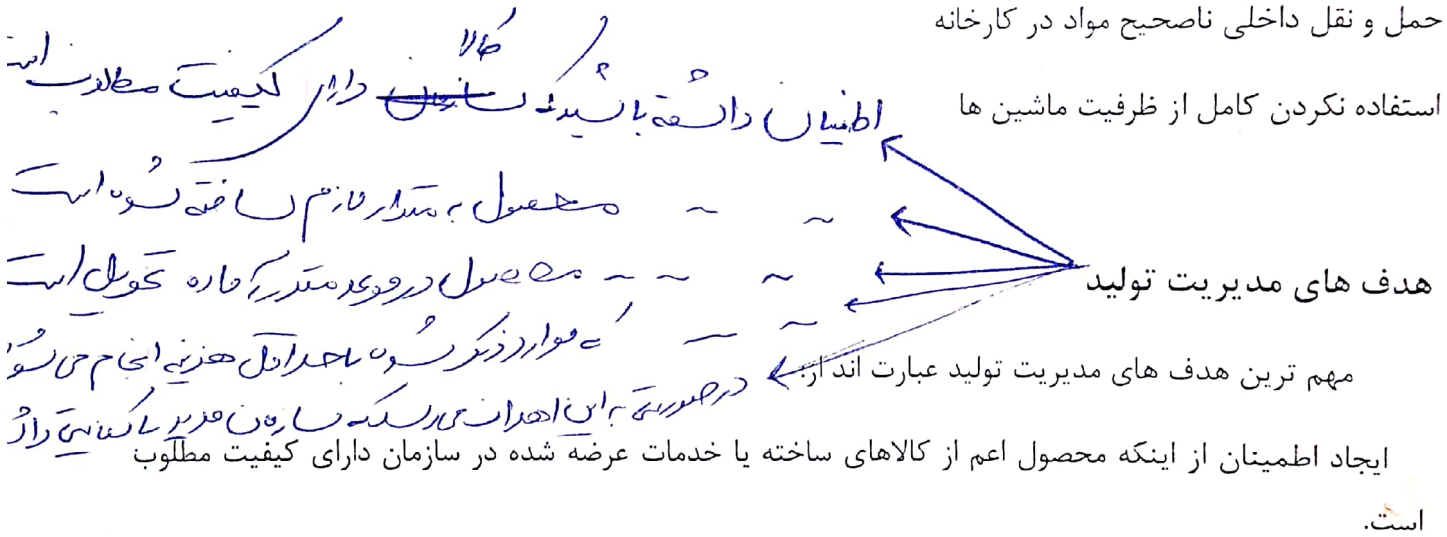 حمل و نقل داخلی ناصحیح مواد در کارخانه
استفاده نکردن کامل از ظرفیت ماشین ها
کالا
اطمینان داشته باشید که سازمان دارای کیفیت مطلوب است
~ ~ محصول به مقدار لازم ساخته شده است
~ ~ ~ محصول در موعد مقرر آماده تحویل است
~ ~ که موارد ذکر شده با حداقل هزینه انجام می شود
در صورتی به این اهداف می رسد که سازمان مدیر با کفایتی دارد
هدف های مدیریت تولید
مهم ترین هدف های مدیریت تولید عبارت اند از:
ایجاد اطمینان از اینکه محصول اعم از کالاهای ساخته یا خدمات عرضه شده در سازمان دارای کیفیت مطلوب
است.